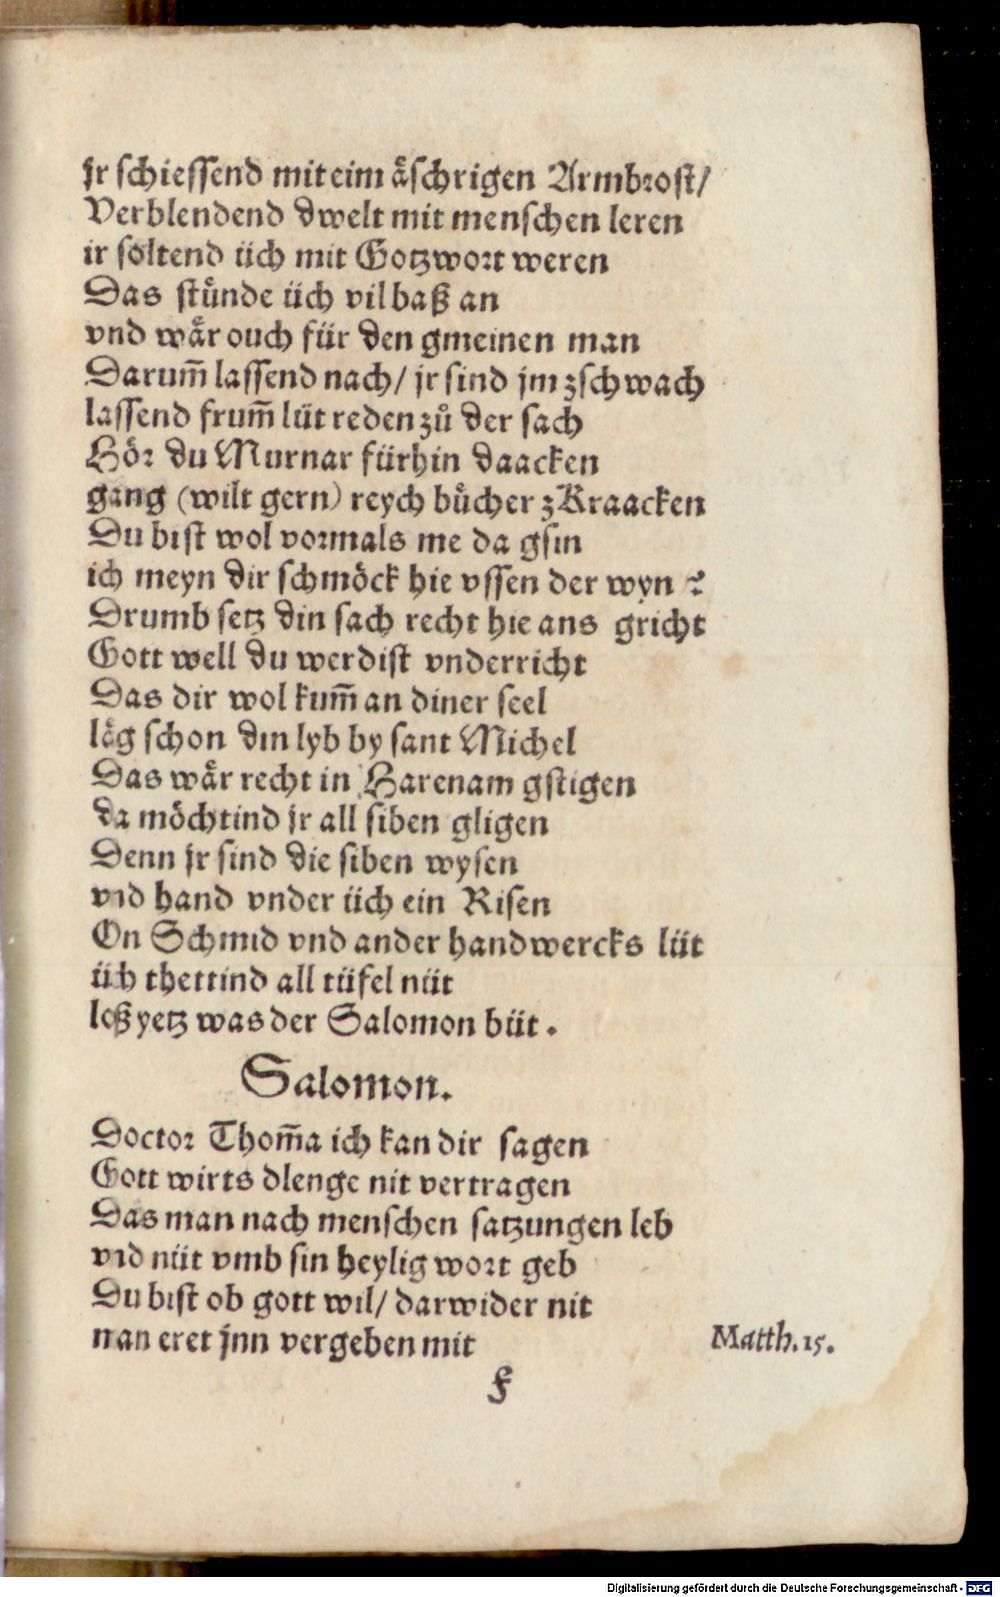 jr schiessend mit eim äschrigen Armbrost/
Verblendend dwelt mit menschen leren
ir söltend üch mit Gotzwort weren
Das stůnde üch vil baß an
vnd wår ouch für den gmeinen man
Darum̄ lassend nach/ jr sind jm zschwach
lassend frum̄ lüt reden zů der sach
Hör du Murnar fürhin daacken
gang (wilt gern) reych bůcher zKraacken
Du bist wol vormals me da gsin
ich meyn dir schmöck hie vssen der wyn ?
Drumb setz din sach recht hie ans gricht
Gott well du werdist vnderricht
Das dir wol kum̄ an diner seel
låg schon din lyb by sant Michel
Das wår recht in Harenam gstigen
da möchtind jr all siben gligen
Denn jr sind die siben wysen
vnd hand vnder üch ein Risen
On Schmid vnd ander handwercks lüt
üch thettind all tüfel nüt
loß yetz was der Salomon büt.
Salomon.
Doctor Thom̄a ich kan dir sagen
Gott wirts dlenge nit vertragen
Das man nach menschen satzungen leb
vnd nüt vmb sin heylig wort geb
Du bist ob gott wil/ darwider nit
man eret jnn vergeben mit
Matth. 15.
f
Digitalisierung gefördert durch die Deutsche Forschungsgemeinschaft - DFG